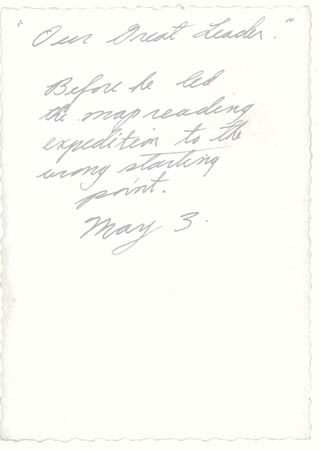 "Our Great Leader."
Before he led
the map reading
expedition to the
wrong starting
point.
May 3.